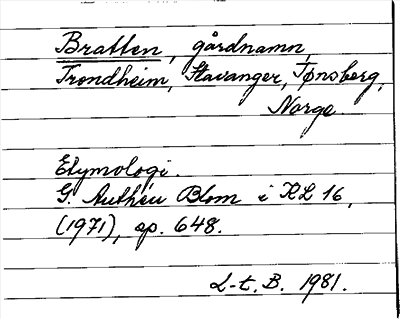 Bratten, gårdnamn,
Trondheim, Stavanger, Tønsberg,
Norge.
Etymologi.
G. Authén Blom i KL 16,
(1971), sp. 648.
L-t. B. 1981.